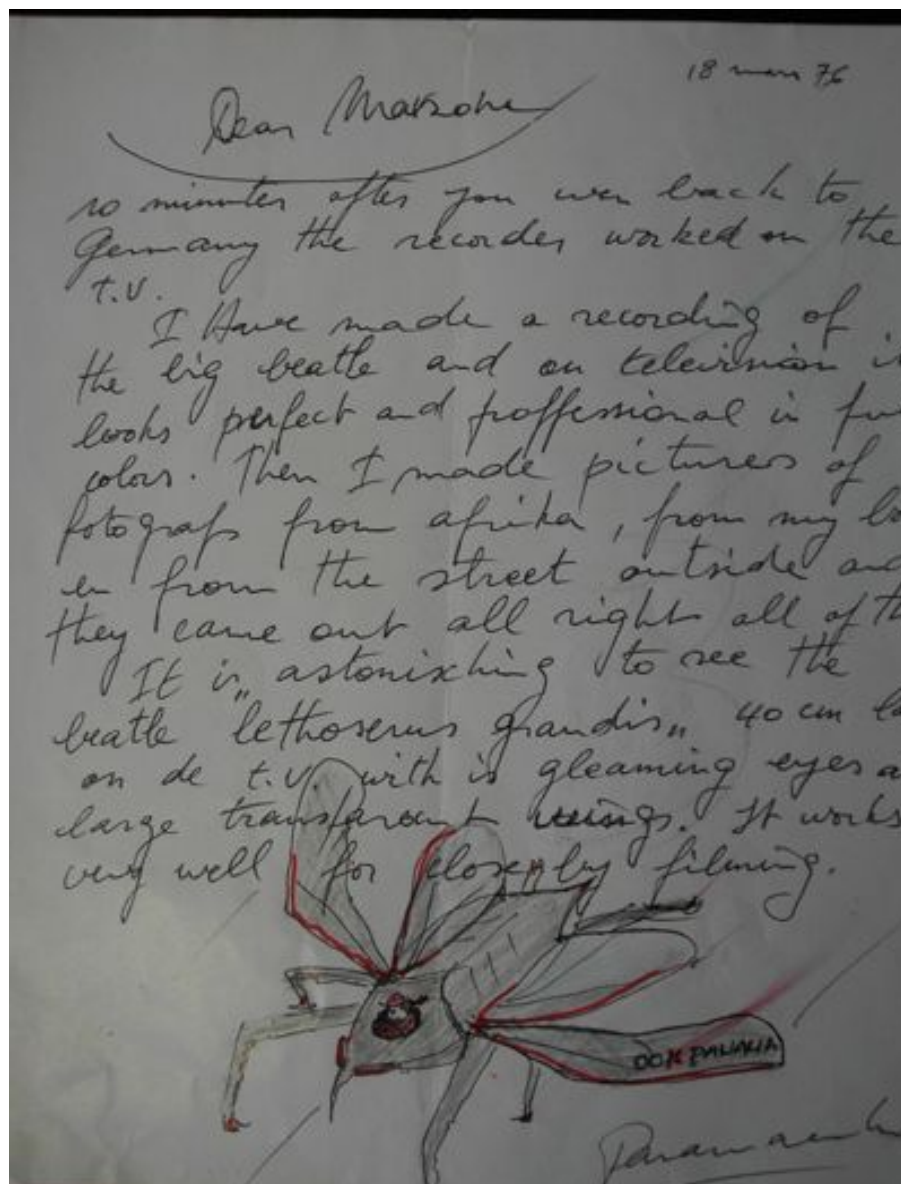 18 mars 76
Dear
10 minutes after you wen back to
Germany the recorder worked on the
T.V.
I Have made a recording of
the big beatle and on television i
looks perfect and proffessional in fu
colors. Then I made pictures of
fotografs from afrika, from my bo
en from the street outside and
they came out all right all of th
It is „ astonisching to see the
beatle lethoserus grandis „ 40 cm la
on de t.v. with is gleaming eyes a
large transparant wings. It works
very well for close by filming.